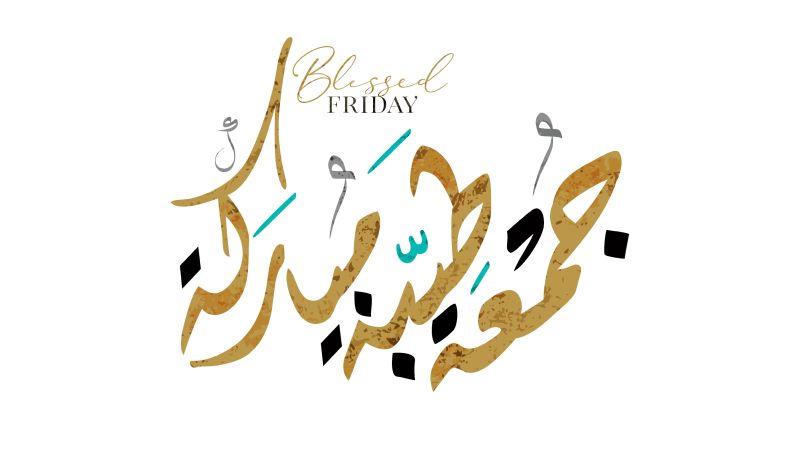 Blessed
FRIDAY
جُمُعَة طيّبة مُباركة